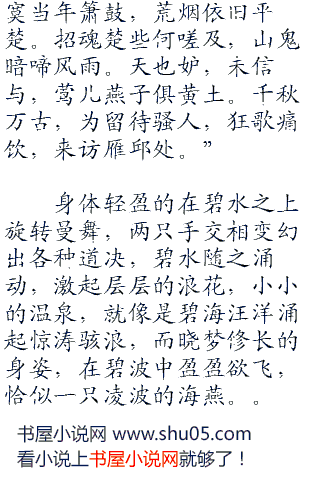 寞当年箫鼓，荒烟依旧平
楚。招魂楚些何嗟及，山鬼
暗啼风雨。天也妒，未信
与，莺儿燕子俱黄土。千秋
万古，为留待骚人，狂歌痛
饮，来访雁邱处。”
身体轻盈的在碧水之上
旋转曼舞，两只手交相变幻
出各种道决，碧水随之涌
动，激起层层的浪花，小小
的温泉，就像是碧海汪洋涌
起惊涛骇浪，而晓梦修长的
身姿，在碧波中盈盈欲飞，
恰似一只凌波的海燕。。
书屋小说网 www.shu05.com
看小说上书屋小说网就够了！